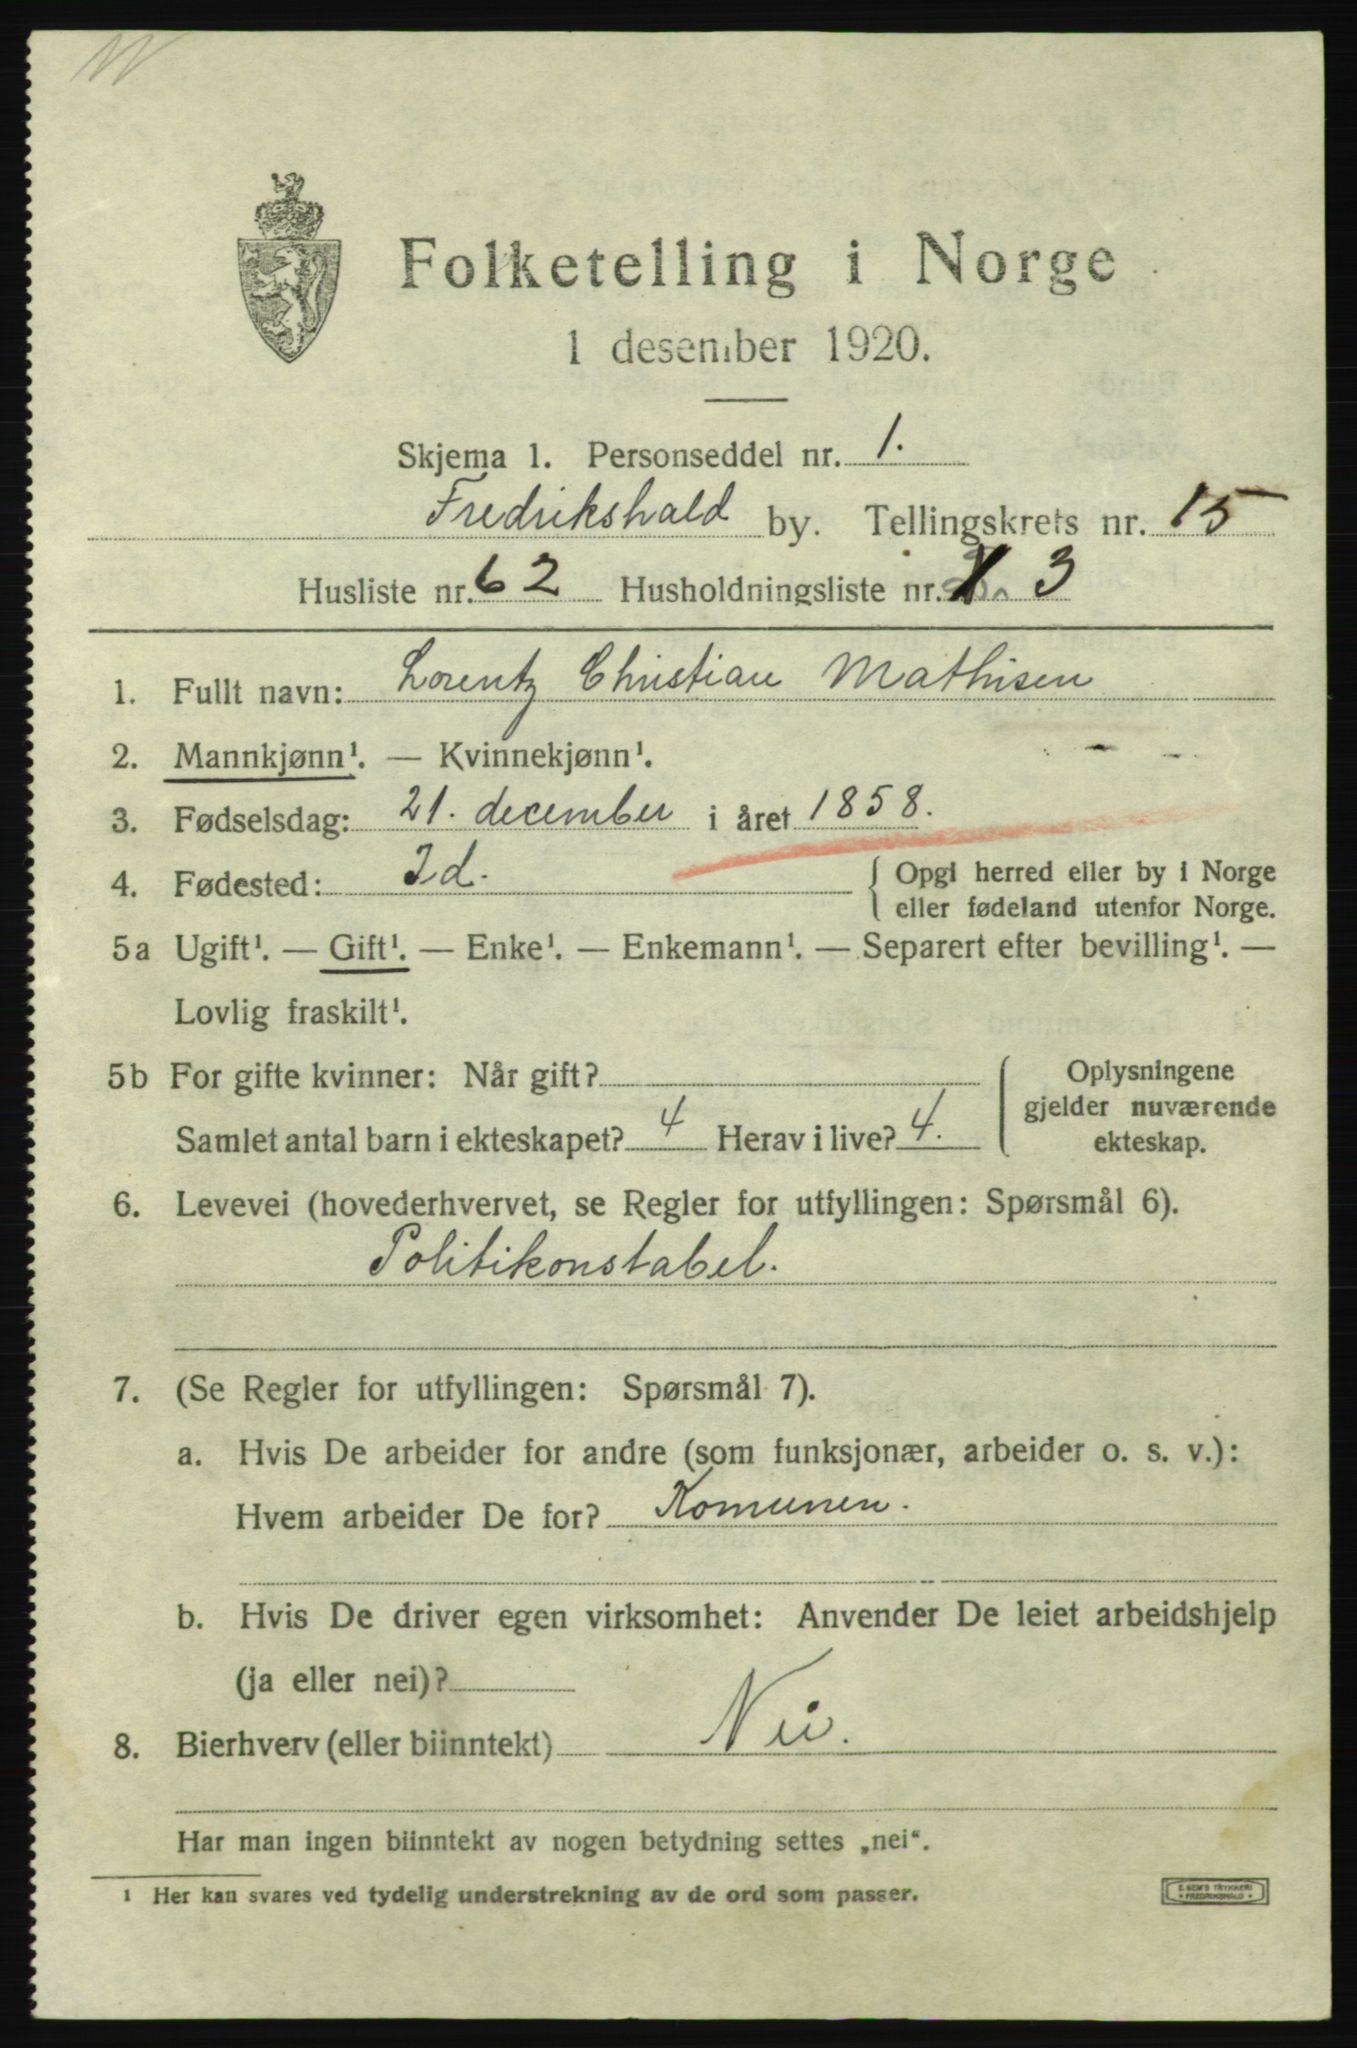 Folketelling i Norge
1 desember 1920.
Skjema 1. Personseddel nr. 1.
Fredrikshald by. Tellingskrets nr. 15
Husliste nr. 62 Husholdningsliste nr. 3
1. Fullt navn: Lorentz Christian Mathisen
2. Mannkjønn¹. — Kvinnekjønn¹.
3. Fødselsdag: 21. december i året 1858.
4. Fødested: Id. { Opgi herred eller by i Norge
eller fødeland utenfor Norge.
5a Ugift¹. — Gift¹. — Enke¹. — Enkemann¹. — Separert efter bevilling¹. —
Lovlig fraskilt¹.
5b For gifte kvinner: Når gift? { Oplysningene
gjelder nuværende
Samlet antal barn i ekteskapet? 4 Herav i live? 4.
ekteskap.
6. Levevei (hovederhvervet, se Regler for utfyllingen: Spørsmål 6).
Politikonstabel.
7. (Se Regler for utfyllingen: Spørsmål 7).
a. Hvis De arbeider for andre (som funksjonær, arbeider o. s. v.):
Hvem arbeider De for? Komunen.
b. Hvis De driver egen virksomhet: Anvender De leiet arbeidshjelp
(ja eller nei)?
8. Bierhverv (eller biinntekt) Nei.
Har man ingen biinntekt av nogen betydning settes „nei“.
¹ Her kan svares ved tydelig understrekning av de ord som passer.
E. SEM'S TRYKKERI
FREDRIKSHALD